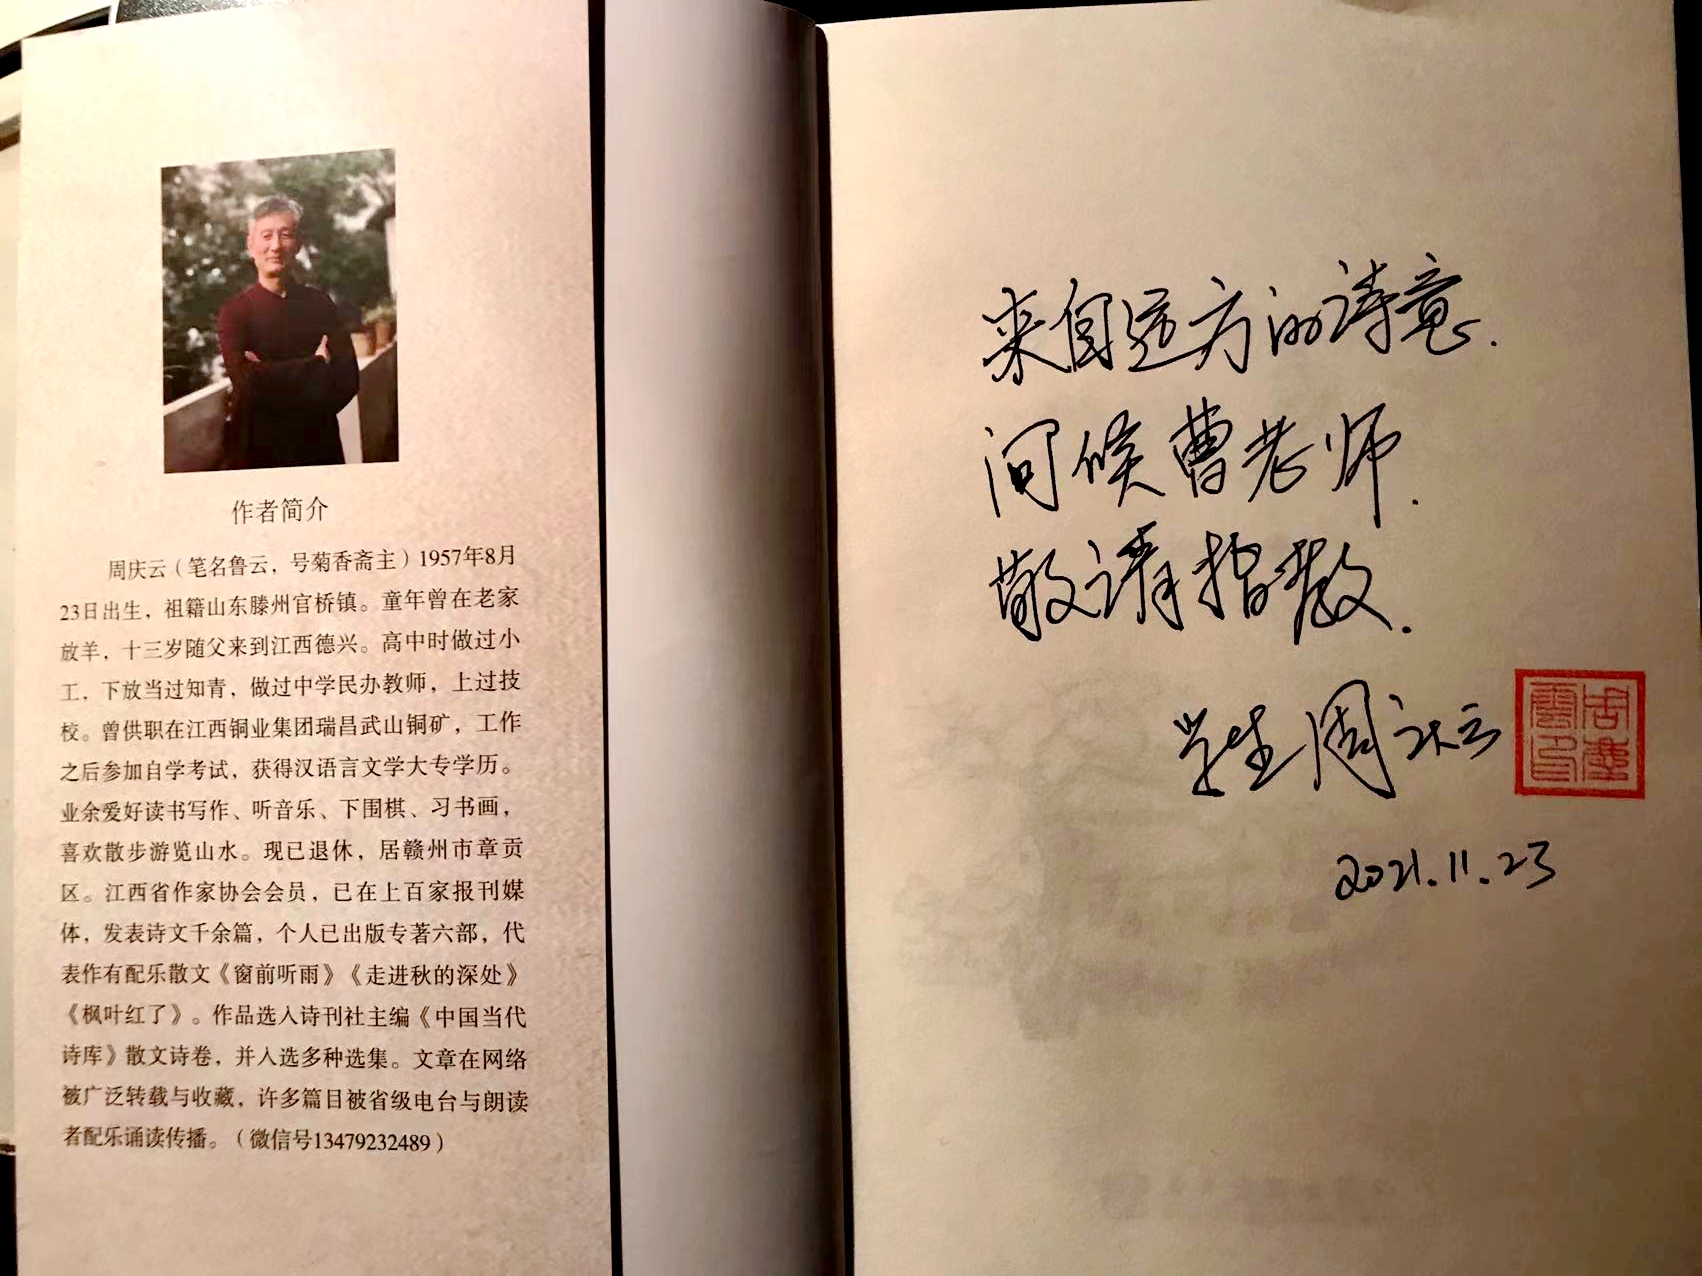 作者简介
周庆云（笔名鲁云，号菊香斋主）1957年8月
23日出生，祖籍山东滕州官桥镇。童年曾在老家
放羊，十三岁随父来到江西德兴。高中时做过小
工，下放当过知青，做过中学民办教师，上过技
校。曾供职在江西铜业集团瑞昌武山铜矿，工作
之后参加自学考试，获得汉语言文学大专学历。
业余爱好读书写作、听音乐、下围棋、习书画，
喜欢散步游览山水。现已退休，居赣州市章贡
区。江西省作家协会会员，已在上百家报刊媒
体，发表诗文千余篇，个人已出版专著六部，代
表作有配乐散文《窗前听雨》《走进秋的深处》
《枫叶红了》。作品选入诗刊社主编《中国当代
诗库》散文诗卷，并入选多种选集。文章在网络
被广泛转载与收藏，许多篇目被省级电台与朗读
者配乐诵读传播。（微信号13479232489）
来自远方的诗意.
问候曹老师.
敬请指教.
学生周庆云
周慶雲印
2021.11.23